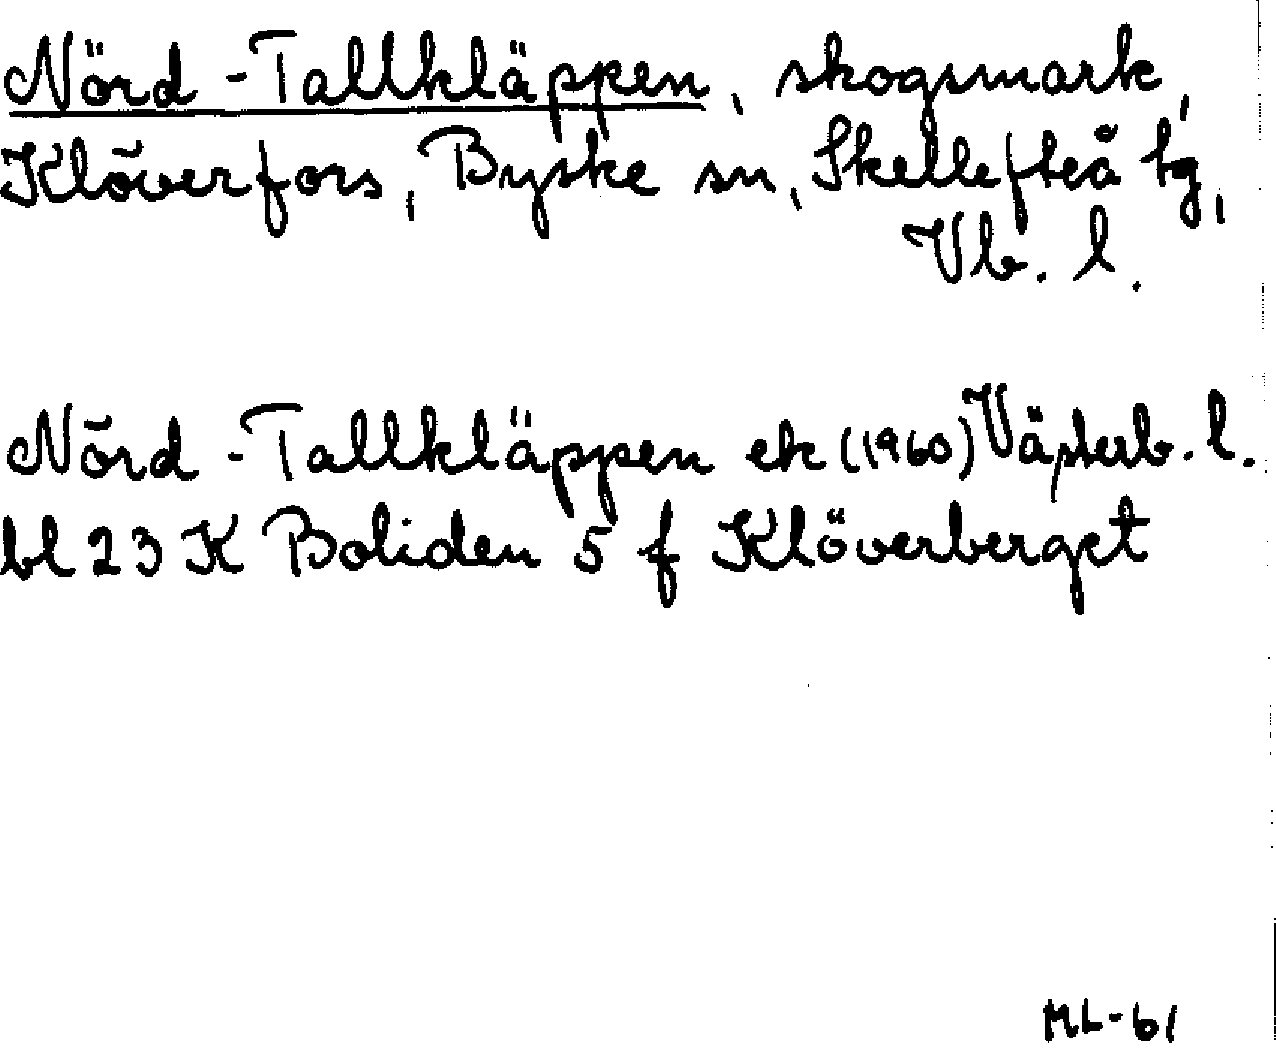 Nörd-Tallkläppen, skogsmark,
Klöverfors, Byske sn, Skellefteå tg,
Vb. l.
Nörd-Tallkläppen ek (1960) Västerb. l.
bl 23 K Boliden 5 f Klöverberget
ML-61